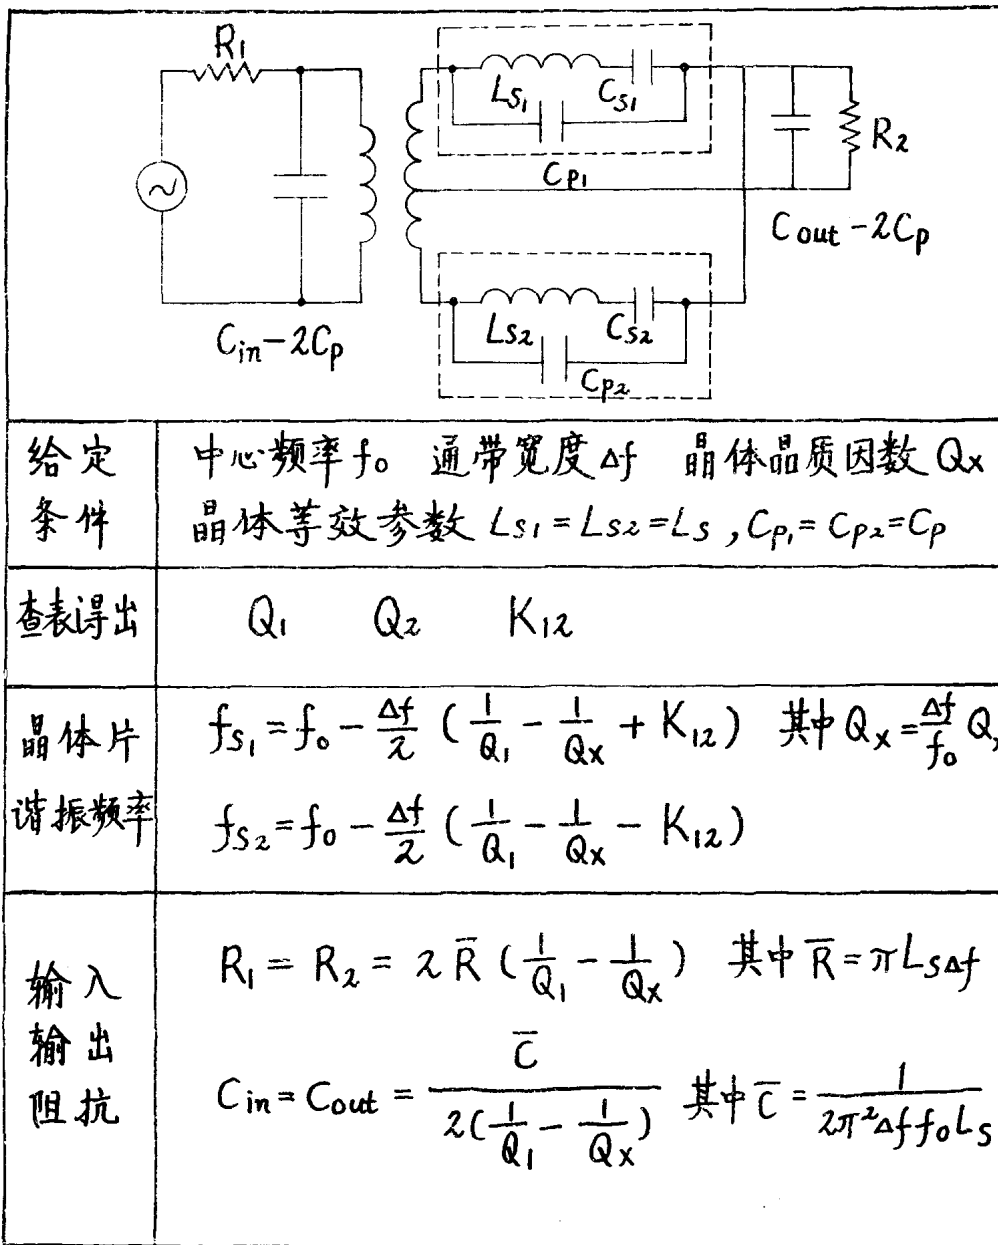 R₁
L_{S₁} C_{S₁}
C_{P₁}
R₂
C_{out} - 2C_p
C_{in} - 2C_p
L_{S2} C_{S2}
C_{P2}
给定条件
中心频率 f₀ 通带宽度 Δf 晶体品质因数 Qx
晶体等效参数 L_{S1} = L_{S2} = L_S , C_{P₁} = C_{P2} = C_P
查表得出
Q₁ Q₂ K₁₂
晶体片谐振频率
f_{S₁} = f₀ - Δf/2 ( 1/Q₁ - 1/Qx + K₁₂ ) 其中 Qx = Δf/f₀ Q
f_{S2} = f₀ - Δf/2 ( 1/Q₁ - 1/Qx - K₁₂ )
输入输出阻抗
R₁ = R₂ = 2 R̅ ( 1/Q₁ - 1/Qx ) 其中 R̅ = πL_SΔf
C_{in} = C_{out} = C̅ / 2( 1/Q₁ - 1/Qx ) 其中 C̅ = 1 / 2π²Δf f₀ L_S